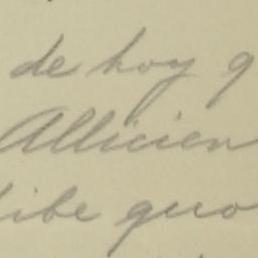 de hoy q
Allicien
libe quo